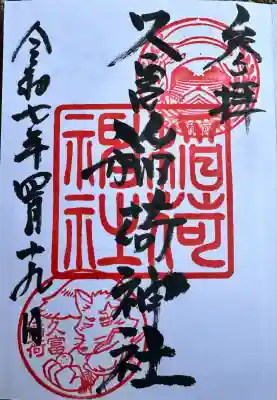 奉拝
久富稲荷神社
令和七年四月十九日
稲荷
神社
久富
稲荷